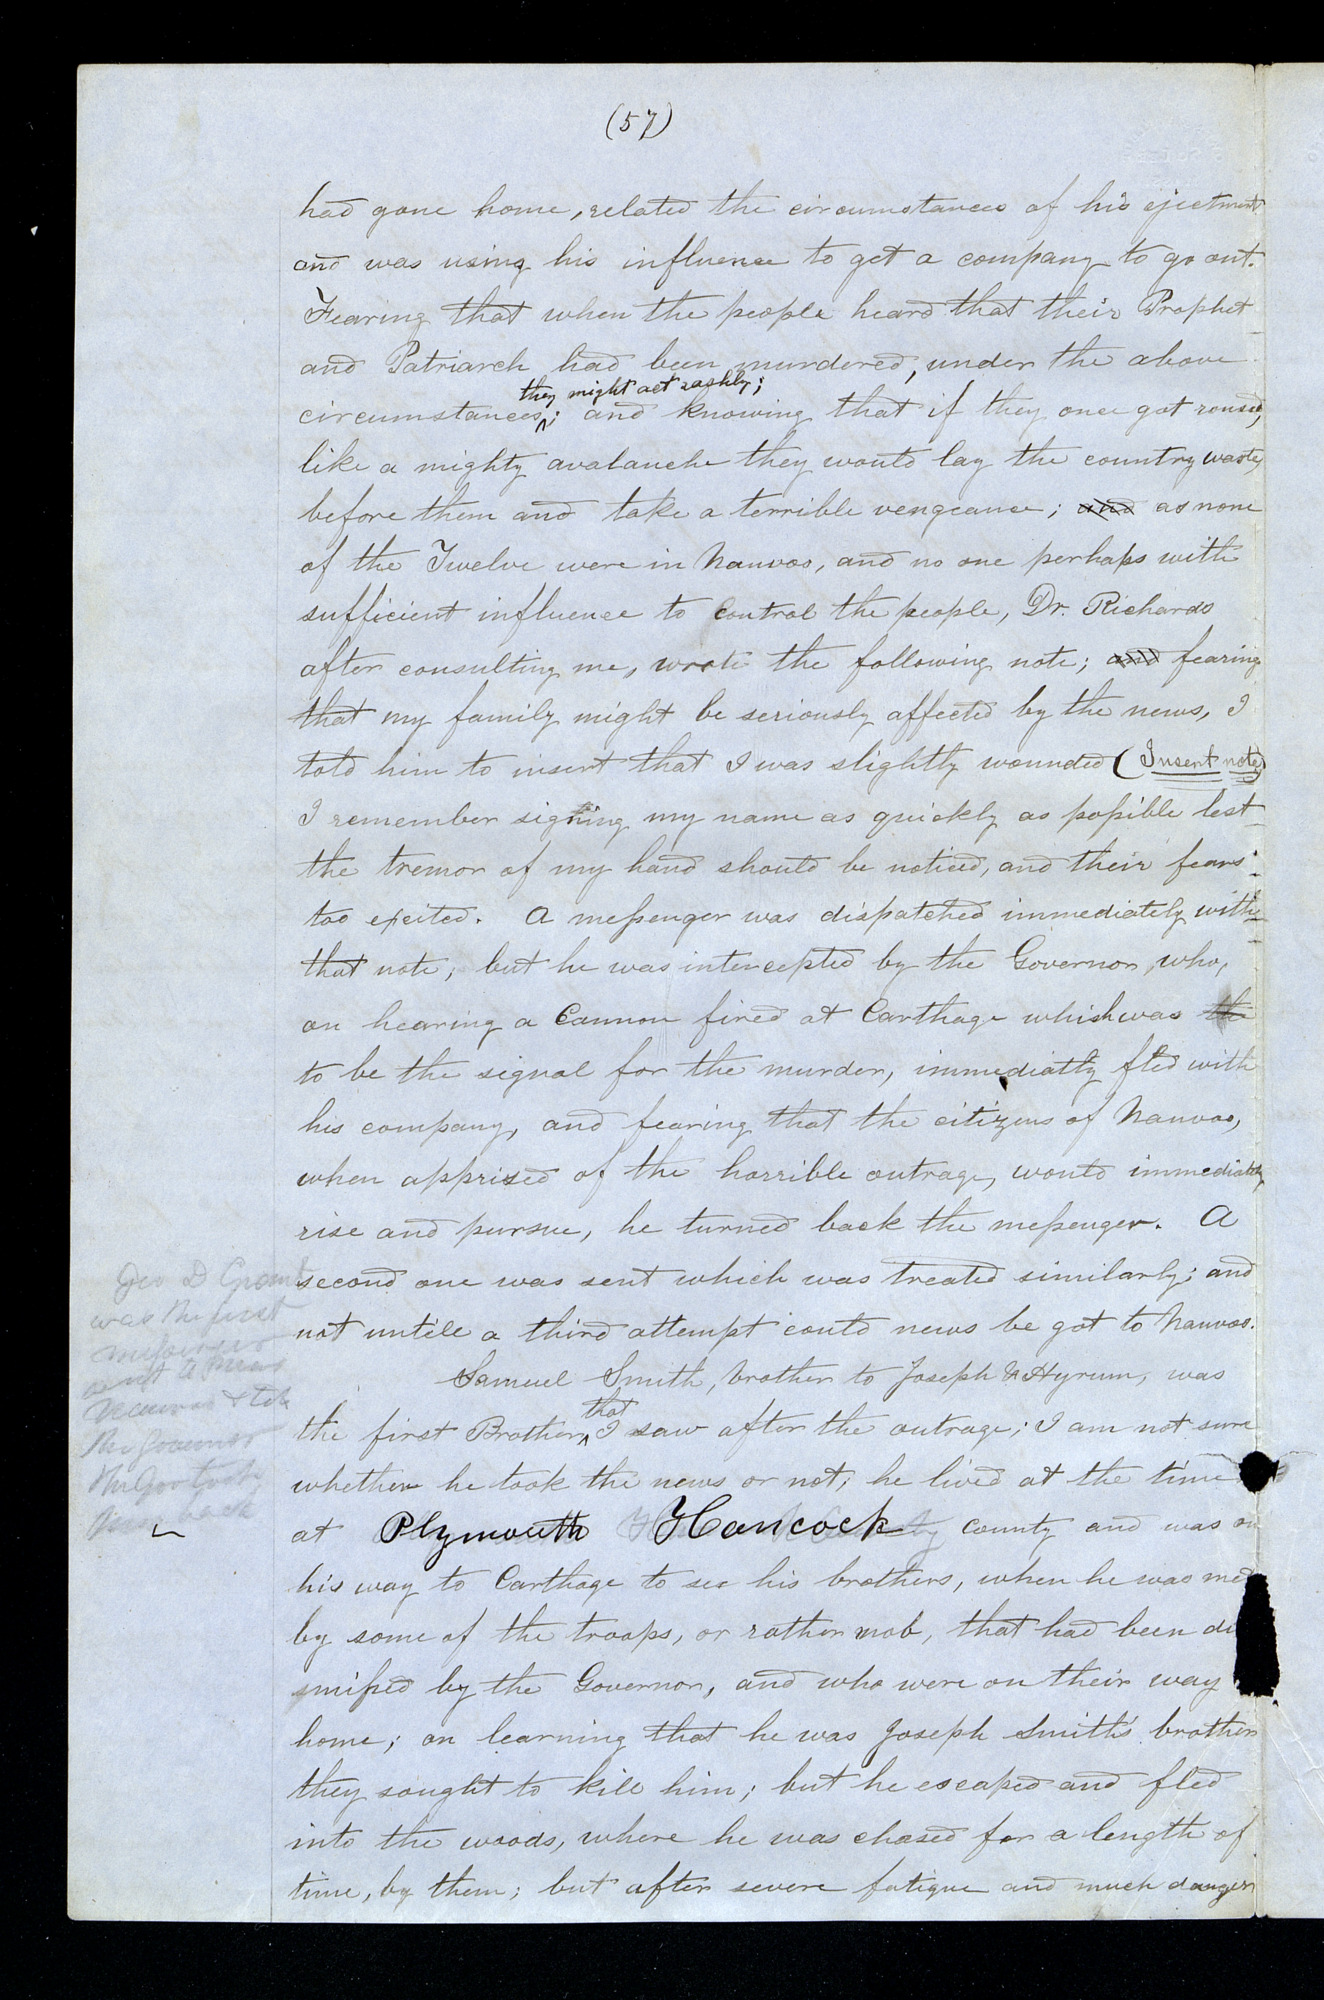 (57)
had gone home, related the circumstances of his ejectment
and was using his influence to get a company to go out.
Fearing that when the people heard that their Prophet
and Patriarch had been murdered, under the above
they might act rashly;
circumstances; and knowing that if they once got roused,
like a mighty avalanche they would lay the country waste
before them and take a terrible vengeance; and as none
of the Twelve were in Nauvoo, and no one perhaps with
sufficient influence to control the people, Dr. Richards
after consulting me, wrote the following note; and fearing
that my family might be seriously affected by the news, I
told him to insert that I was slightly wounded (Insert note)
I remember signing my name as quickly as possible lest
the tremor of my hand should be noticed, and their fears
too excited. A messenger was dispatched immediately with
that note, but he was intercepted by the Governor, who,
on hearing a Cannon fired at Carthage which was the
to be the signal for the murder, immediatly fled with
his company, and fearing that the citizens of Nauvoo,
when apprized of the horrible outrage, would immediately
rise and pursue, he turned back the messenger. A
second one was sent which was treated similarly; and
not untill a third attempt could news be got to Nauvoo.
Geo D Grant
was the first
messenger
sent to
Nauvoo &
the Governor
the Gov took
him back
Samuel Smith, brother to Joseph & Hyrum, was
that
the first Brother, I saw after the outrage; I am not sure
whether he took the news or not; he lived at the time
at Plymouth Hancock county and was on
his way to Carthage to see his brothers, when he was met
by some of the troops, or rather mob, that had been di
smissed by the Governor, and who were on their way
home; on learning that he was Joseph Smith's brother
they sought to kill him; but he escaped and fled
into the woods, where he was chased for a length of
time, by them; but after severe fatigue and much danger